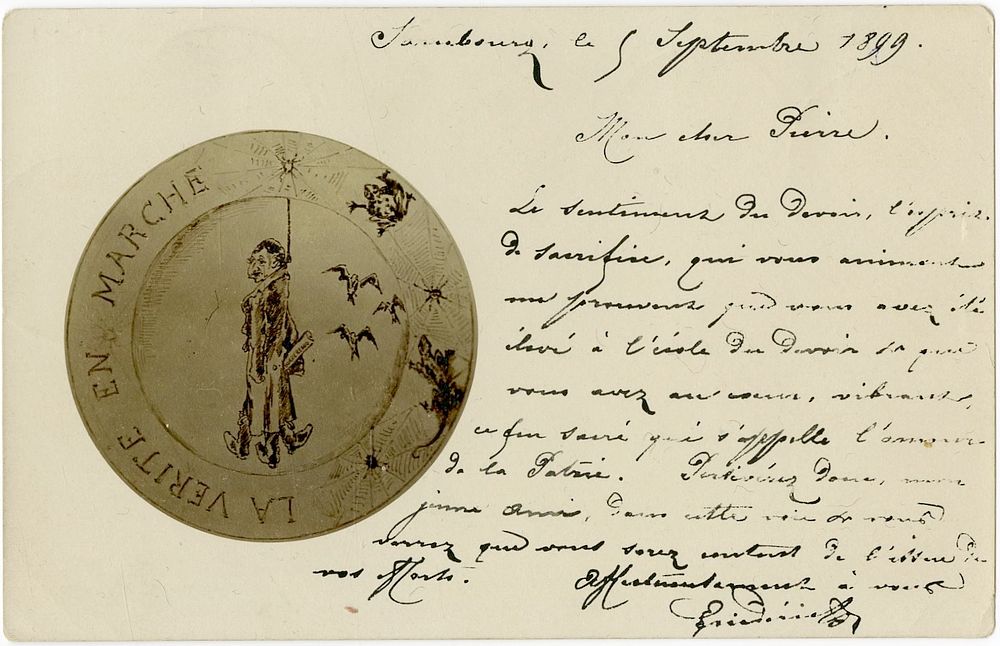 LA VERITE EN MARCHE
le 5 Septembre 1899.
Mon cher Pierre.
Le sentiment du devoir, l'esprit
de sacrifice, qui vous animent
me prouvent que vous avez été
élevé à l'école du devoir & que
vous avez au cœur, vibrant,
ce feu sacré qui s'appelle l'amour
de la Patrie. Persévérez donc, mon
jeune ami, dans cette voie & vous
verrez que vous serez content de l'issue de
vos efforts. Affectueusement à vous